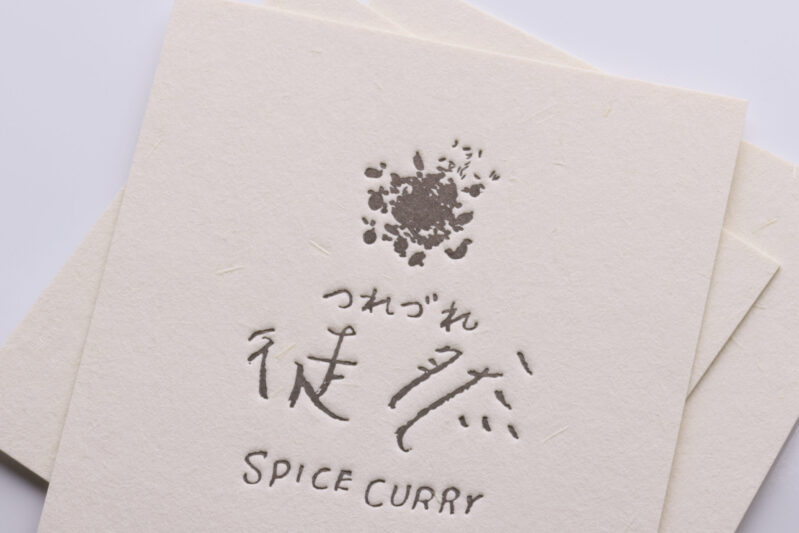 つれづれ
徒然
SPICE CURRY